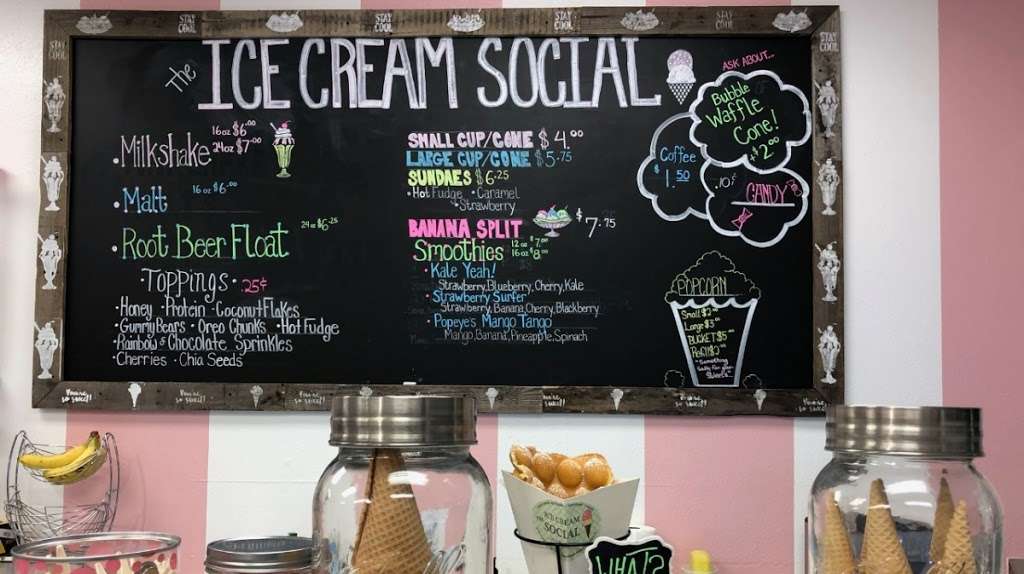 the ICE CREAM SOCIAL
Milkshake 16oz $6.00
24oz $7.00
Malt 16oz $6.00
Root Beer Float 24oz $6.25
Toppings 25¢
Honey · Protein · Coconut Flakes
Gummy Bears · Oreo Chunks · Hot Fudge
Rainbow & Chocolate Sprinkles
Cherries · Chia Seeds
SMALL CUP/CONE $4.00
LARGE CUP/CONE $5.75
SUNDAES $6.25
Hot Fudge · Caramel
Strawberry
BANANA SPLIT $7.75
Smoothies 12oz $7.00
16oz $8.00
Kale Yeah!
Strawberry, Blueberry, Cherry, Kale
Strawberry Surfer
Strawberry, Banana, Cherry, Blackberry
Popeye's Mango Tango
Mango, Banana, Pineapple, Spinach
ASK ABOUT...
Bubble
Waffle
Cone!
+$2.00
Coffee
$1.50
.10¢
CANDY
POPCORN
Small $2
Large $3
BUCKET $5
Refill $3
STAY COOL
STAY COOL
STAY COOL
STAY COOL
STAY COOL
STAY COOL
You're so sweet!
You're so sweet!
You're so sweet!
ICE CREAM
SOCIAL
WHAT'S